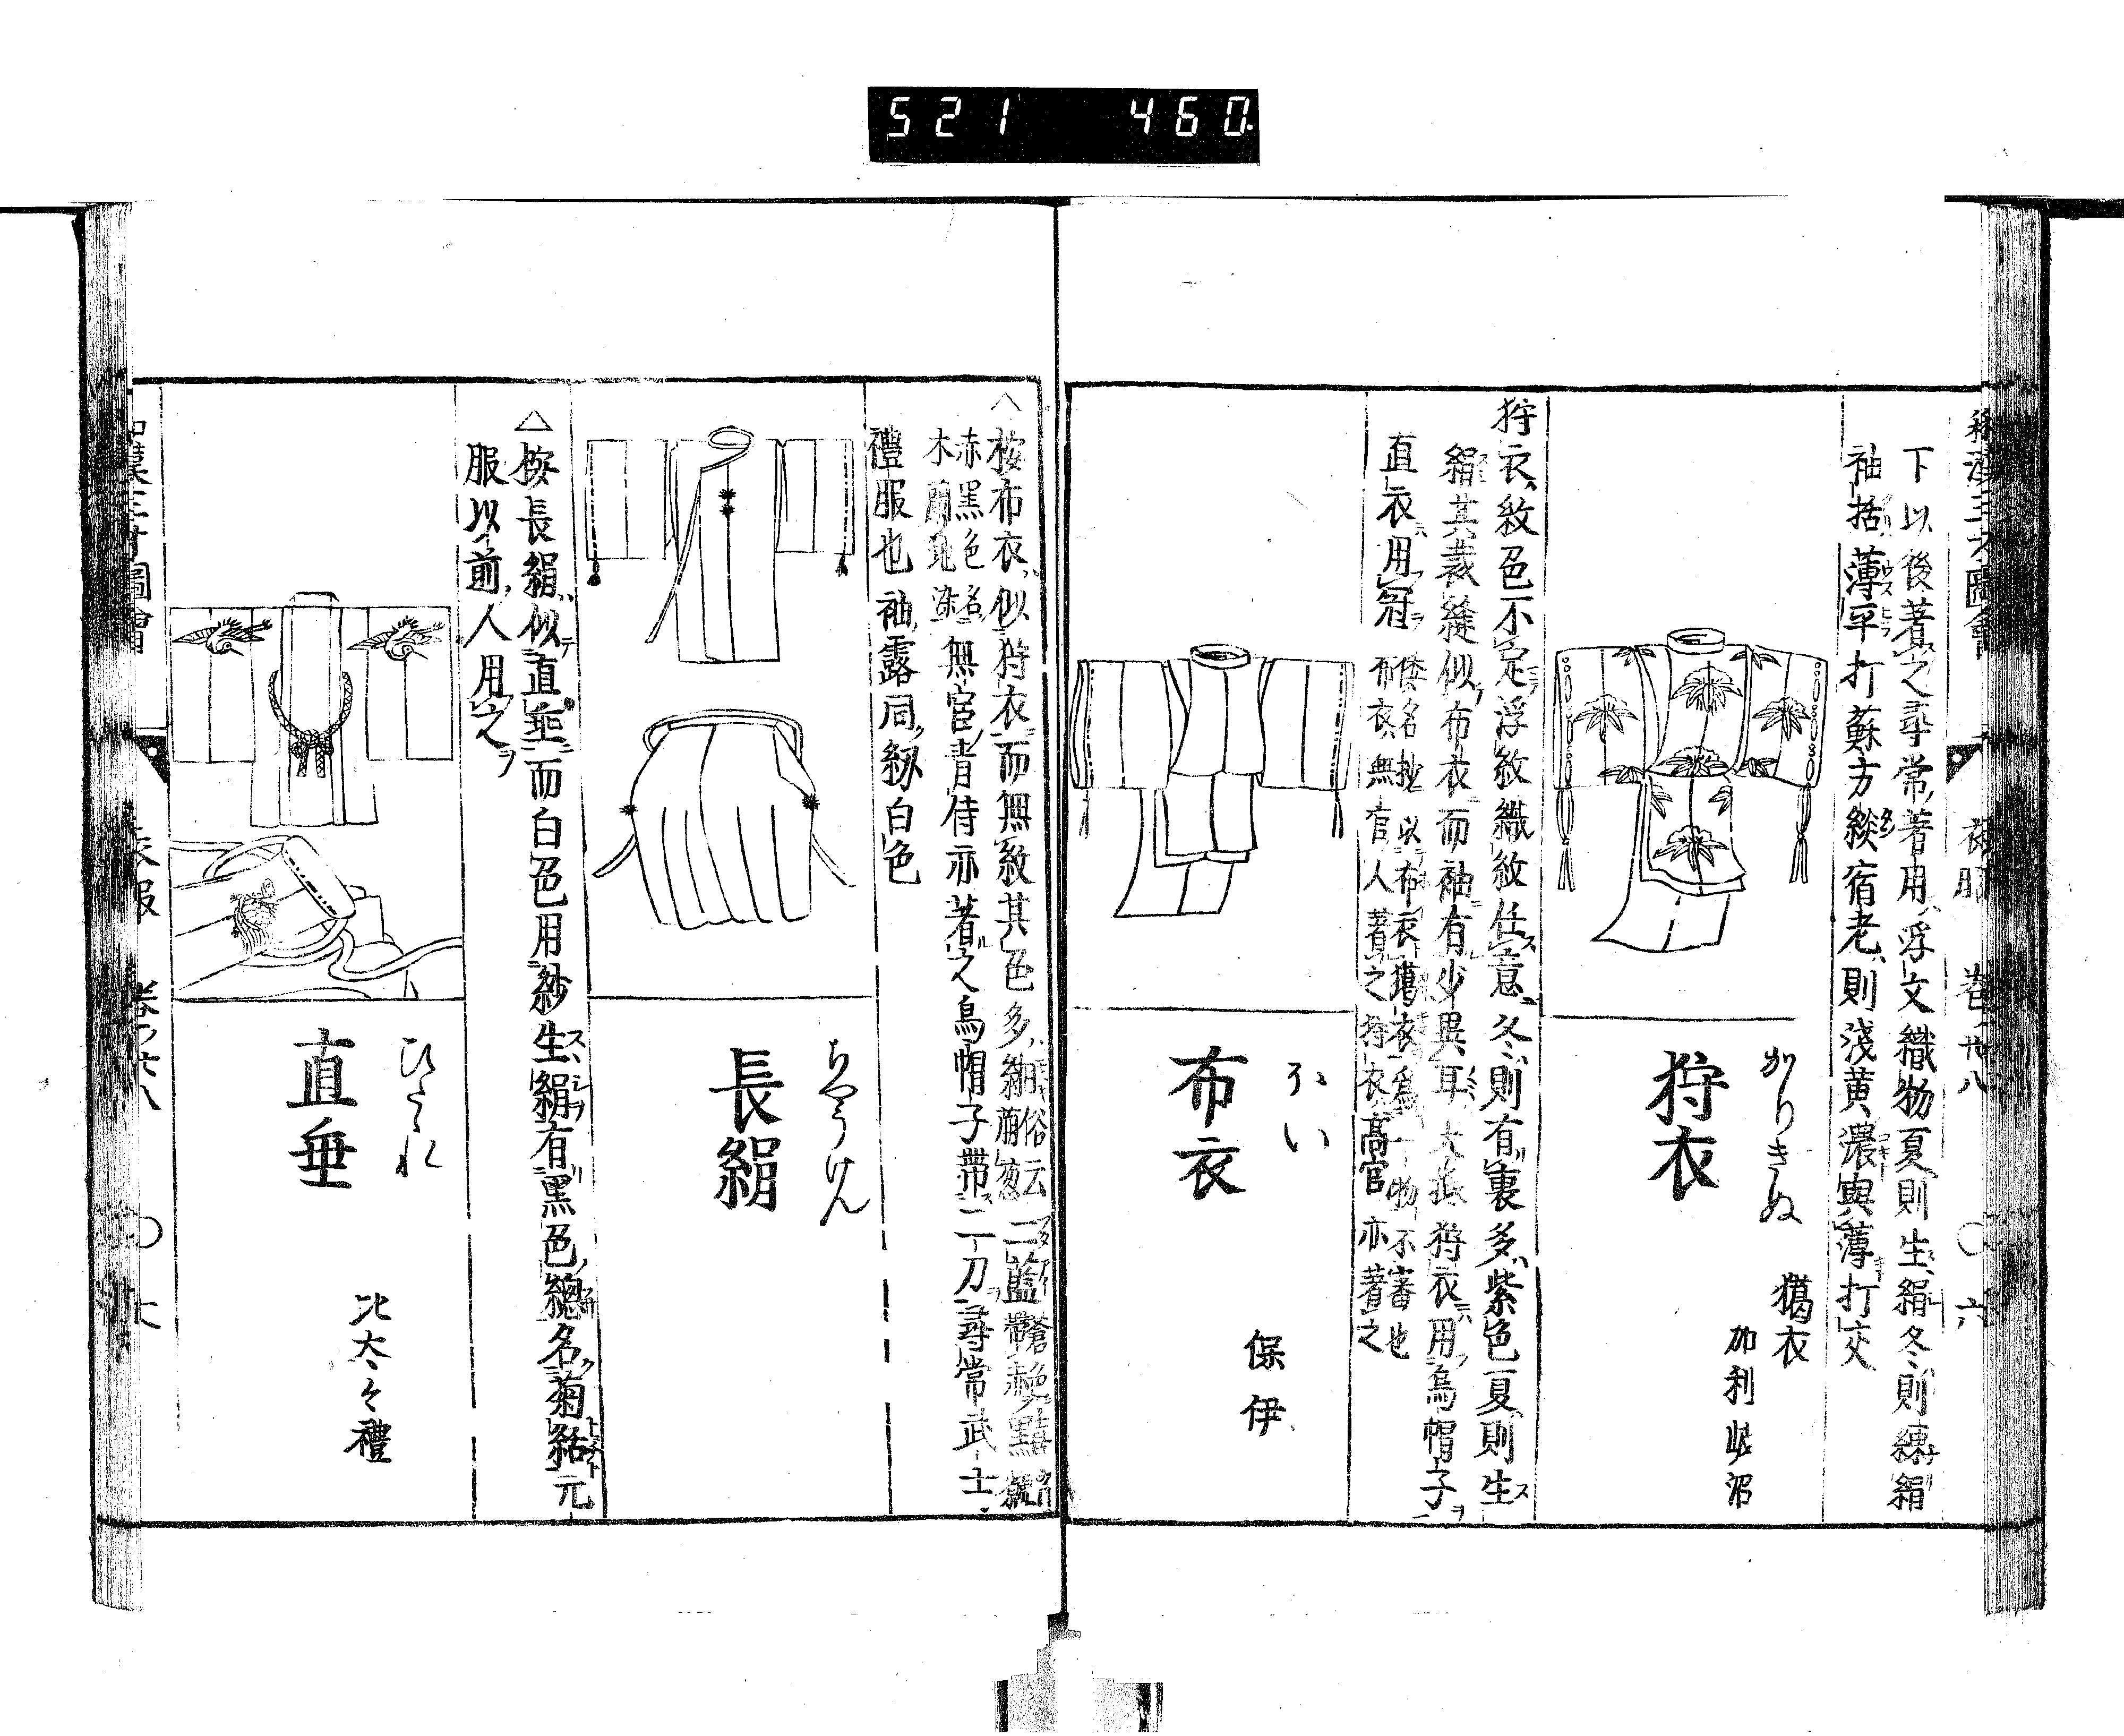 521 460
下以後著之尋常著用浮文織物夏則生絹冬則練絹
袖括薄平打蘇方緂宿老則淺黄濃與薄打交
かりきぬ
狩衣
獦衣
加利岐沼
狩衣紋色不定浮紋織紋任意冬則有裏多紫色夏則生
絹其裁縫似布衣而袖有少異耳大抵狩衣用烏帽子
直衣用冠
倭名抄以布衣獦衣爲一物不審也
布衣無官人著之狩衣高官亦著之
ほい
布衣
保伊
△按布衣似狩衣而無紋其色多
俗云二藍
赤黑色名
木蘭地染
無官青侍亦著之烏帽子帶二刀尋常武士
禮服也袖露同紐白色
ちやうけん
長絹
△按長絹似直垂而白色用紗生絹有黑色總名菊結元
服以前人用之
ひたたれ
直垂
比太々禮
和漢三才圖會
衣服